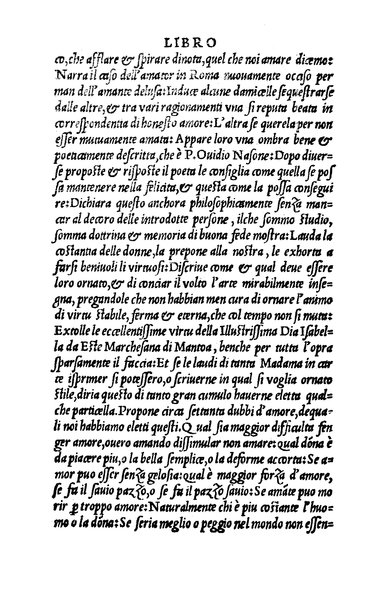 LIBRO
co, che afflare & spirare dinota, quel che noi amare dicemo:
Narra il caso dell'amator in Roma nuouamente occiso per
man dell'amante delusa: Induce alcune damicelle sequestrarse
dalle altre, & tra vari ragionamenti vna si reputa beata in
correspondentia di honesto amore: L'altra se querela per non
esser mutuamente amata: Appare loro vna ombra bene &
poeticamente descritta, che è P. Ouidio Nasone: Dopo diuer-
se proposte & risposte il poeta le consiglia come quella se pos
sa mantenere nella felicita, & questa come la possa consegui
re: Dichiara questo anchora philosophicamente senza man-
car al decoro delle introdotte persone, ilche sommo studio,
somma dottrina & memoria di buona fede mostra: Lauda la
costantia delle donne, la prepone alla nostra, le exhorta a
farsi beniuoli li virtuosi: Descriue come & qual deue essere
loro ornato, & di conciar il volto l'arte mirabilmente inse-
gna, pregandole che non habbian men cura di ornare l'animo
di virtu stabile, ferma & eterna, che col tempo non si muta:
Extolle le eccellentissime virtu della Illustrissima Dia Isabel-
la da Este Marchesana di Mantoa, benche per tutta l'opra
sparsamente il faccia: Et se le laudi di tanta Madama in car
te isprimer si potessero, o scriuerne in qual si voglia ornato
stile, diria questo di tanto gran cumulo hauerne eletta qual-
che particella. Propone circa settanta dubbi d'amore, dequa-
li noi habbiamo eletti questi. Qual sia maggior difficulta fin
ger amore, ouero amando dissimular non amare: qual dōna è
da piacere piu, o la bella semplice, o la deforme accorta: Se a-
mor puo esser senza gelosia: Qual è maggior forza d'amore,
se fa il sauio pazzo, o se fa il pazzo sauio: Se amāte puo mo
rir ꝑ troppo amore: Naturalmente chi è piu costante l'huo-
mo o la dōna: Se seria meglio o peggio nel mondo non essen-